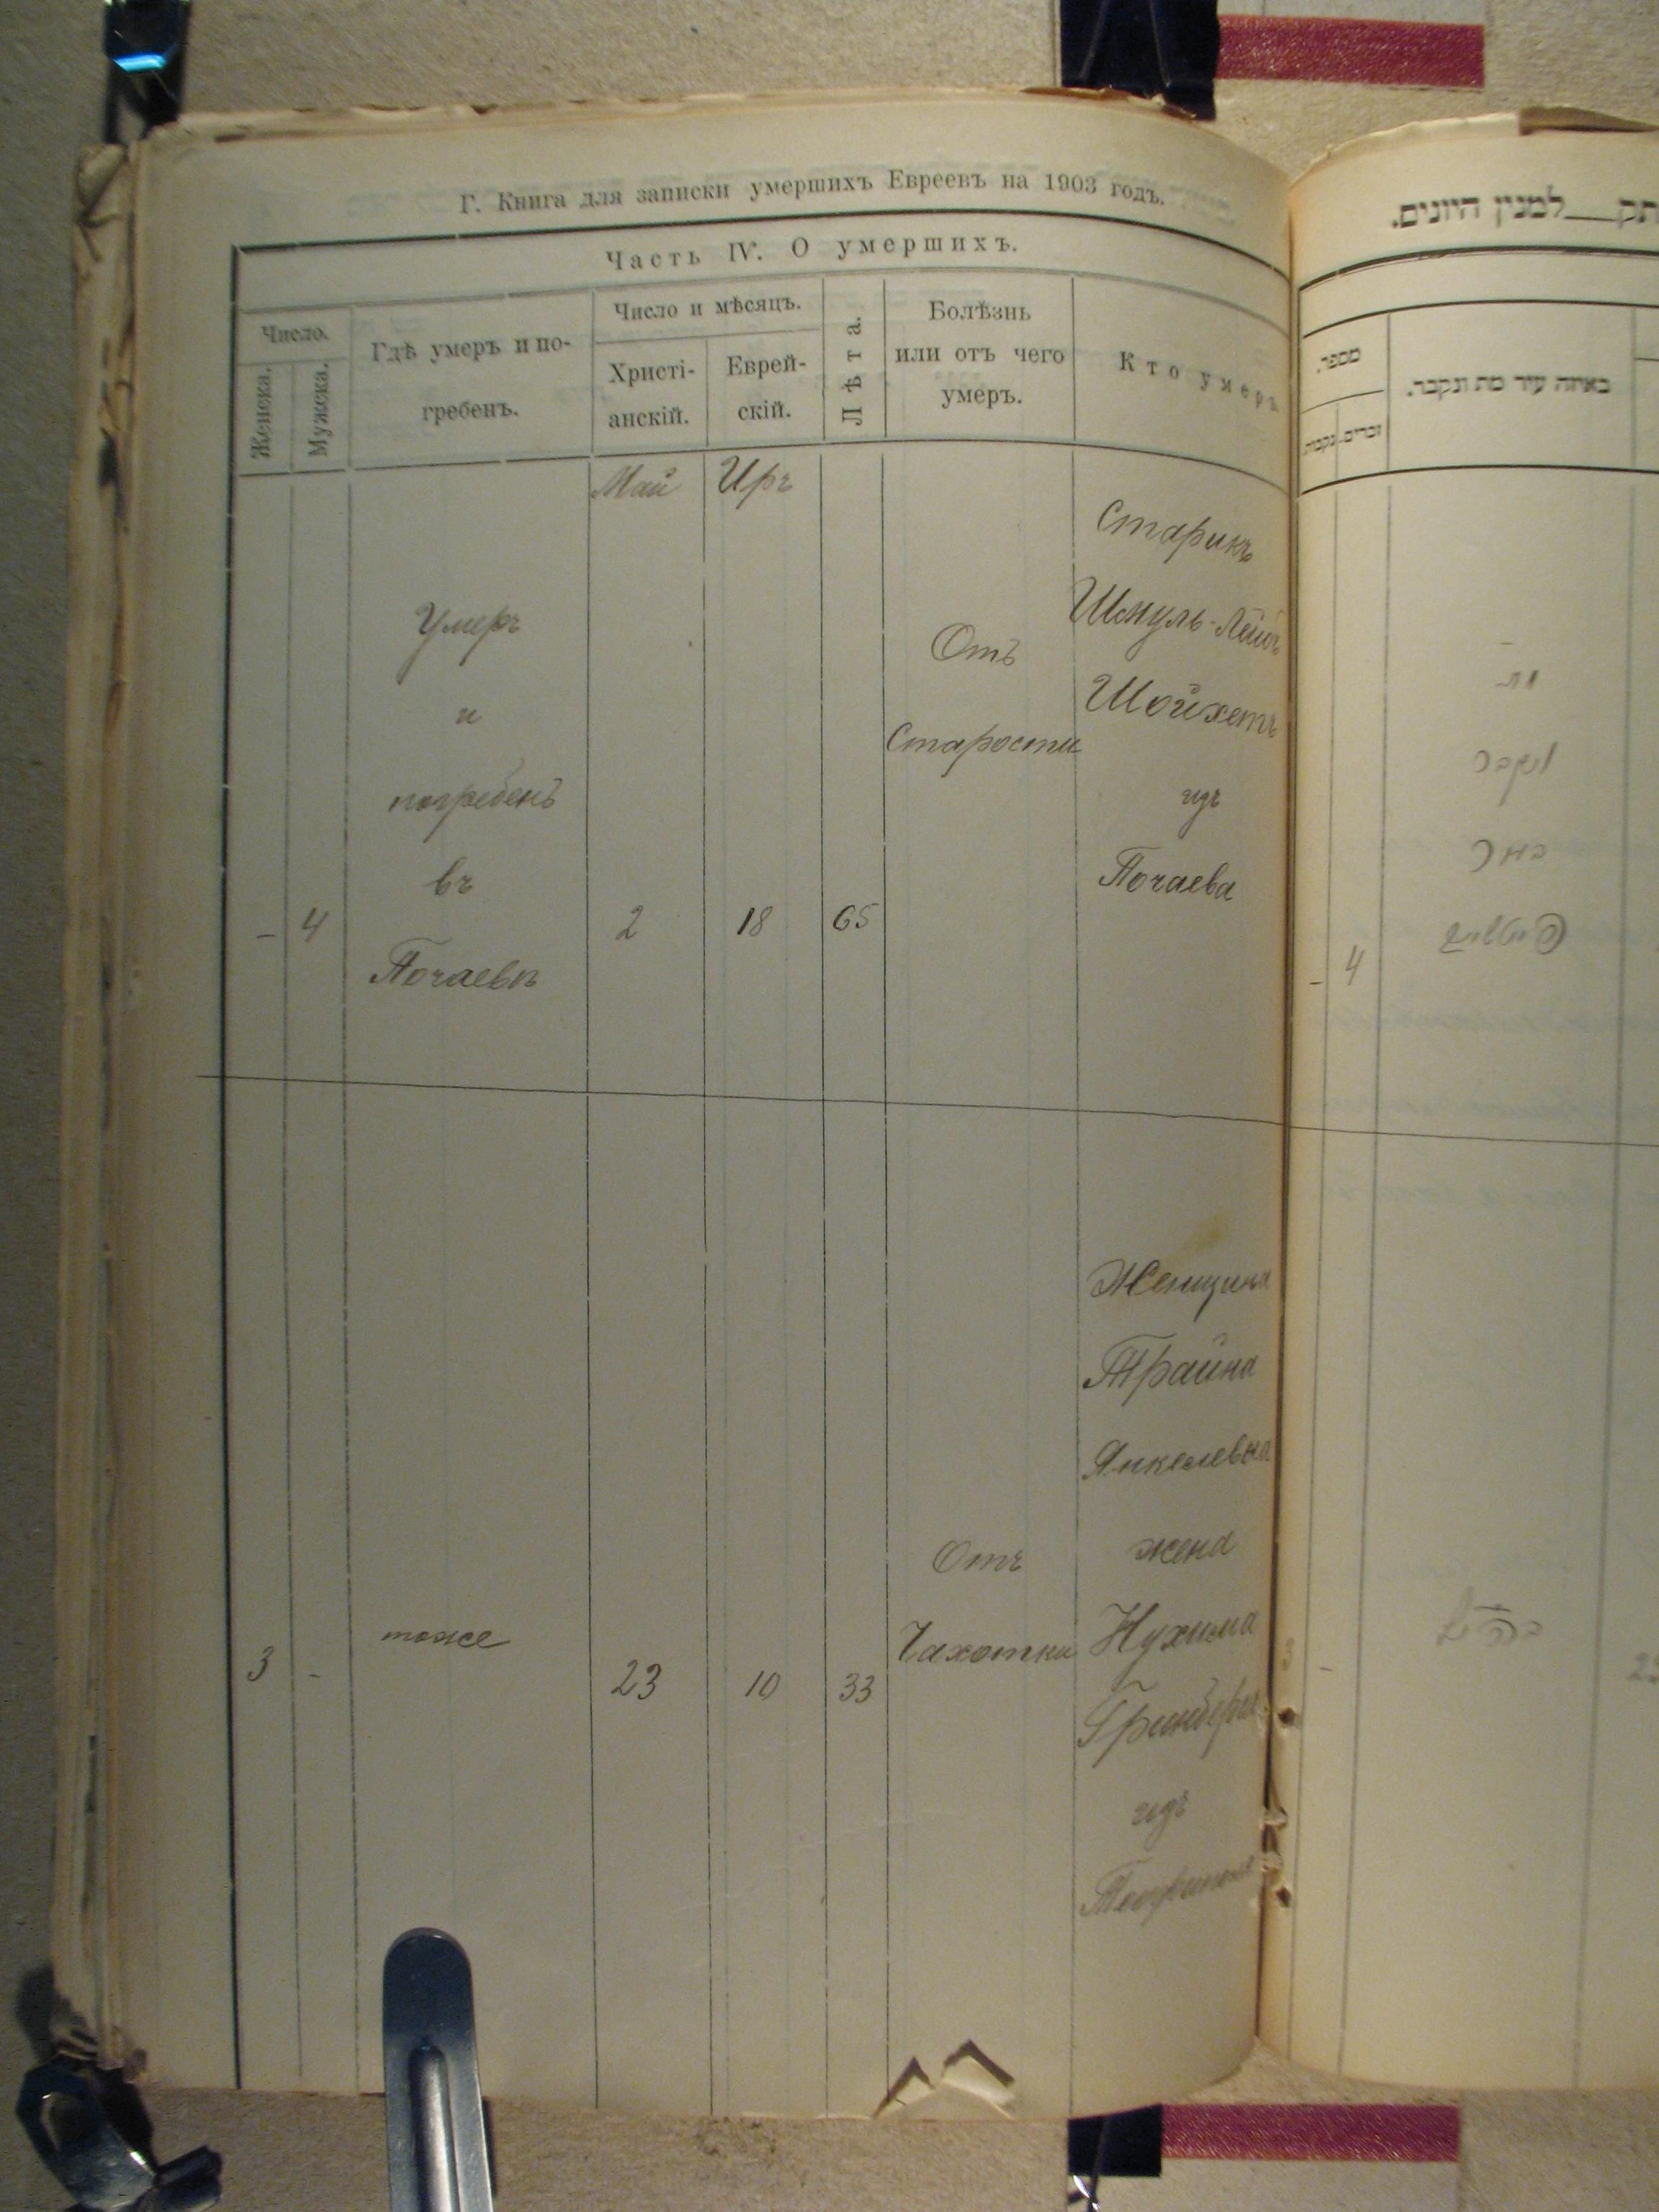 Г. Книга для записки умершихъ Евреевъ на 1903 годъ.
Часть IV. О умершихъ.
Число.
Женска.
Мужска.
Гдѣ умеръ и по-
гребенъ.
Число и мѣсяцъ.
Христі-
анскій.
Еврей-
скій.
Лѣта.
Болѣзнь
или отъ чего
умеръ.
Кто умеръ
Май
Иръ
– 4
Умеръ
и
погребенъ
въ
Почаевѣ
2
18
65
Отъ
Старости
Старикъ
Шмуль-Лейбъ
Шойхетъ
изъ
Почаева
3 -
тоже
23
10
33
Отъ
Чахотки
Женщина
Трайна
Янкелевна
жена
Нухима
Гринберга
изъ
למנין היונים.
מספר.
נקבות.
זכרים.
באיזה עיר מת ונקבר.
– 4
מת
ונקבר